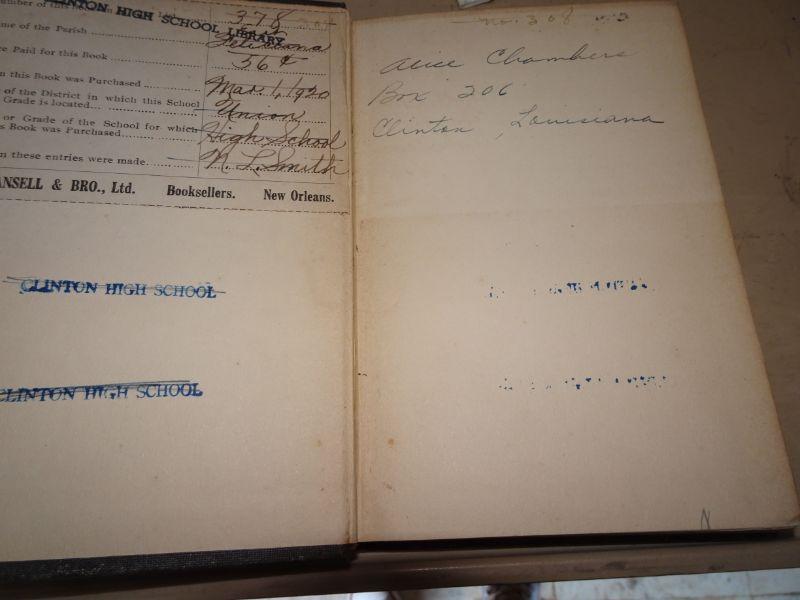 CLINTON HIGH SCHOOL LIBRARY
378
me of the Parish Feliciana
e Paid for this Book 56¢
n this Book was Purchased Mar. 1, 1920
of the District in which this School
Grade is located Union
or Grade of the School for which
s Book was Purchased High School
n these entries were made N. L. Smith
ANSELL & BRO., Ltd. Booksellers. New Orleans.
CLINTON HIGH SCHOOL
CLINTON HIGH SCHOOL
no. 308
Alice Chambers
Box 206
Clinton, Louisiana
N